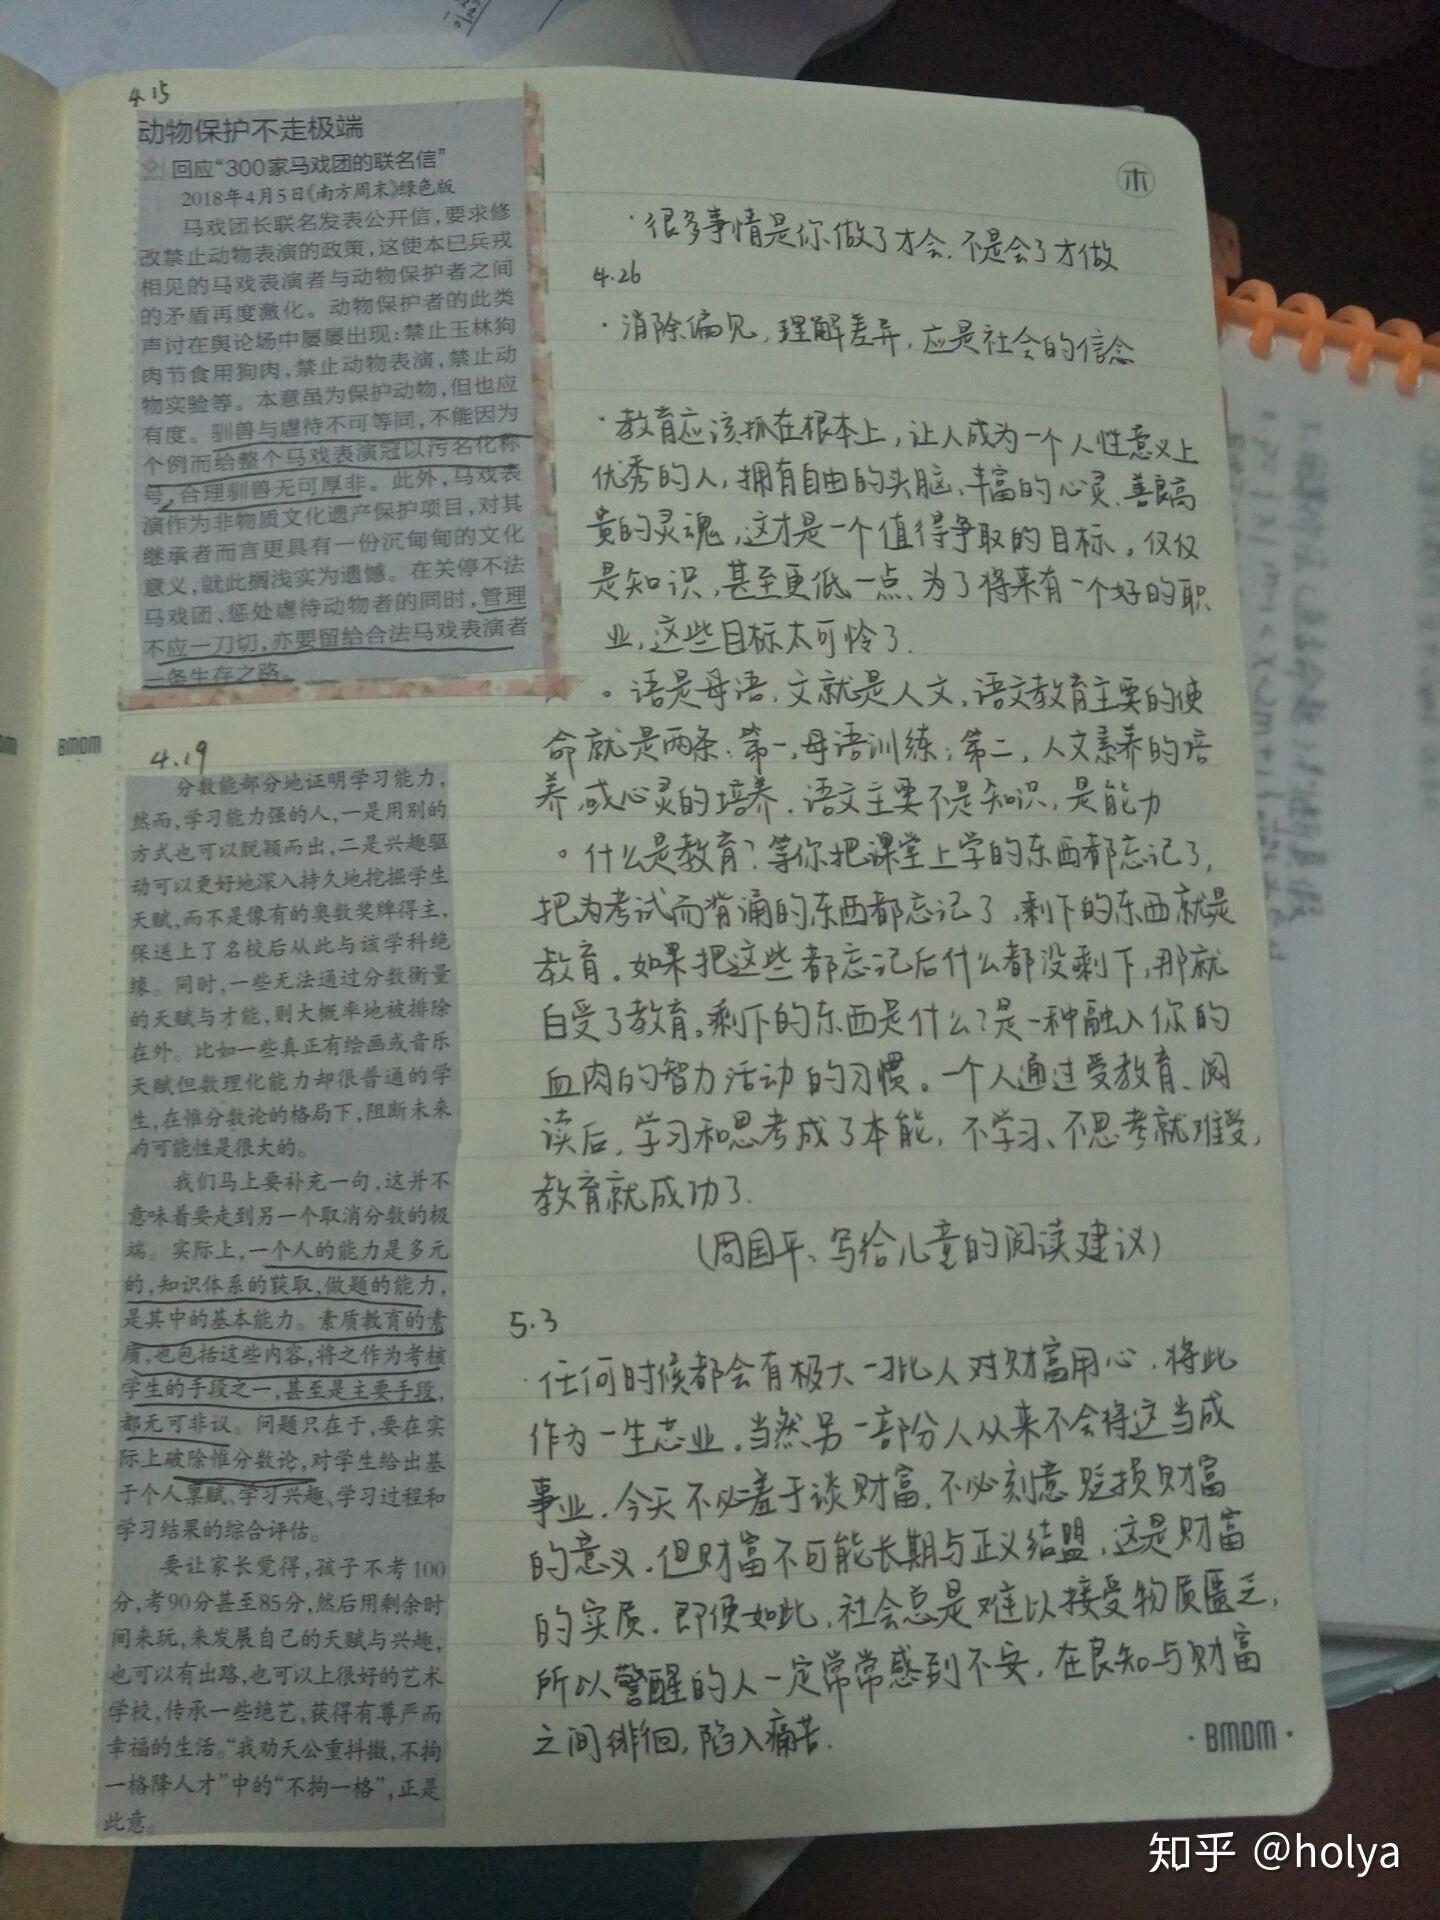 4.15
动物保护不走极端
回应“300家马戏团的联名信”
2018年4月5日《南方周末》绿色版
马戏团长联名发表公开信，要求修
改禁止动物表演的政策，这使本已兵戎
相见的马戏表演者与动物保护者之间
的矛盾再度激化。动物保护者的此类
声讨在舆论场中屡屡出现：禁止玉林狗
肉节食用狗肉，禁止动物表演，禁止动
物实验等。本意虽为保护动物，但也应
有度。驯兽与虐待不可等同，不能因为
个例而给整个马戏表演冠以污名化称
号，合理驯兽无可厚非。此外，马戏表
演作为非物质文化遗产保护项目，对其
继承者而言更具有一份沉甸甸的文化
意义，就此搁浅实为遗憾。在关停不法
马戏团、惩处虐待动物者的同时，管理
不应一刀切，亦要留给合法马戏表演者
一条生存之路。
BMDM
4.19
分数能部分地证明学习能力，
然而，学习能力强的人，一是用别的
方式也可以脱颖而出，二是兴趣驱
动可以更好地深入持久地挖掘学生
天赋，而不是像有的奥数奖牌得主，
保送上了名校后从此与该学科绝
缘。同时，一些无法通过分数衡量
的天赋与才能，则大概率地被排除
在外。比如一些真正有绘画或音乐
天赋但数理化能力却很普通的学
生，在惟分数论的格局下，阻断未来
的可能性是很大的。
我们马上要补充一句，这并不
意味着要走到另一个取消分数的极
端。实际上，一个人的能力是多元
的，知识体系的获取，做题的能力，
是其中的基本能力。素质教育的素
质，也包括这些内容，将之作为考核
学生的手段之一，甚至是主要手段，
都无可非议。问题只在于，要在实
际上破除惟分数论，对学生给出基
于个人禀赋、学习兴趣、学习过程和
学习结果的综合评估。
要让家长觉得，孩子不考100
分，考90分甚至85分，然后用剩余时
间来玩，来发展自己的天赋与兴趣，
也可以有出路，也可以上很好的艺术
学校，传承一些绝艺，获得有尊严而
幸福的生活。“我劝天公重抖擞，不拘
一格降人才”中的“不拘一格”，正是
此意。
木
·很多事情是你做了才会，不是会了才做
4.26
·消除偏见，理解差异，应是社会的信念
·教育应该抓在根本上，让人成为一个人性意义上
优秀的人，拥有自由的头脑、丰富的心灵、善良高
贵的灵魂，这才是一个值得争取的目标。仅仅
是知识，甚至更低一点、为了将来有一个好的职
业，这些目标太可怜了．
。语是母语，文就是人文，语文教育主要的使
命就是两条：第一，母语训练；第二，人文素养的培
养，或心灵的培养．语文主要不是知识，是能力
。什么是教育？等你把课堂上学的东西都忘记了，
把为考试而背诵的东西都忘记了，剩下的东西就是
教育。如果把这些都忘记后什么都没剩下，那就
白受了教育。剩下的东西是什么？是一种融入你的
血肉的智力活动的习惯。一个人通过受教育、阅
读后，学习和思考成了本能，不学习、不思考就难受，
教育就成功了．
（周国平、写给儿童的阅读建议）
5.3
·任何时候都会有极大一批人对财富用心，将此
作为一生志业。当然，另一部分人从来不会将这当成
事业．今天不必羞于谈财富，不必刻意贬损财富
的意义．但财富不可能长期与正义结盟，这是财富
的实质．即便如此，社会总是难以接受物质匮乏，
所以警醒的人一定常常感到不安，在良知与财富
之间徘徊，陷入痛苦．
·BMDM·
知乎 @holya